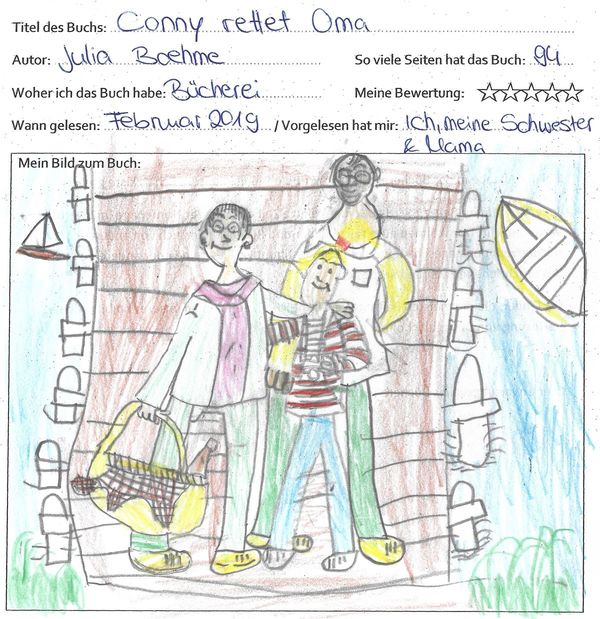 Titel des Buchs: Conny rettet Oma
Autor: Julia Boehme So viele Seiten hat das Buch: 94
Woher ich das Buch habe: Bücherei Meine Bewertung: ☆☆☆☆☆
Wann gelesen: Februar 2019 / Vorgelesen hat mir: Ich, meine Schwester
& Mama
Mein Bild zum Buch: